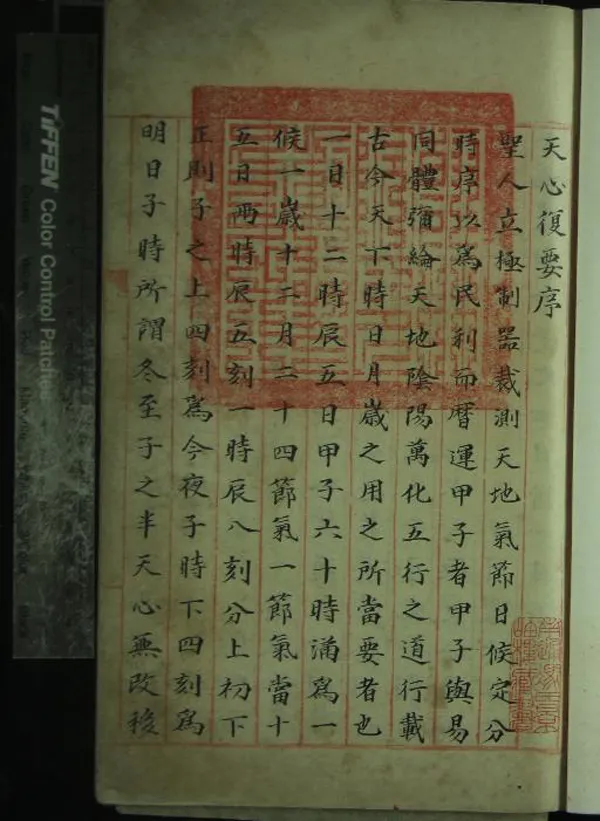 天心復要序
聖人立極制器裁測天地氣節日候定分
時序以為民利而曆運甲子者甲子與易
同體彌綸天地陰陽萬化五行之道行載
古今天下時日月歲之用之所當要者也
一日十二時辰五日甲子六十時滿為一
候一歲十二月二十四節氣一節氣當十
五日兩時辰五刻一時辰八刻分上初下
正則子之上四刻為今夜子時下四刻為
明日子時所謂冬至子之半天心無改移
TIFFEN Color Control Patches